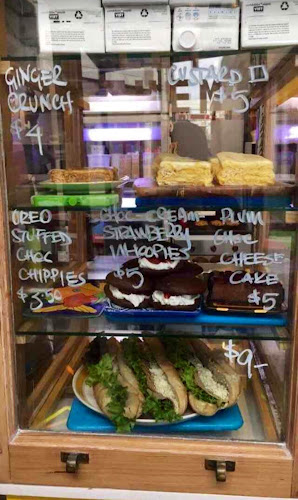 GINGER
CRUNCH
$4
CUSTARD □
$5
OREO
STUFFED
CHOC
CHIPPIES
$3.50
CHOC CREAM
STRAWBERRY
WHOOPIES
$5
PLUM
CHOC
CHEESE
CAKE
$5
$9-